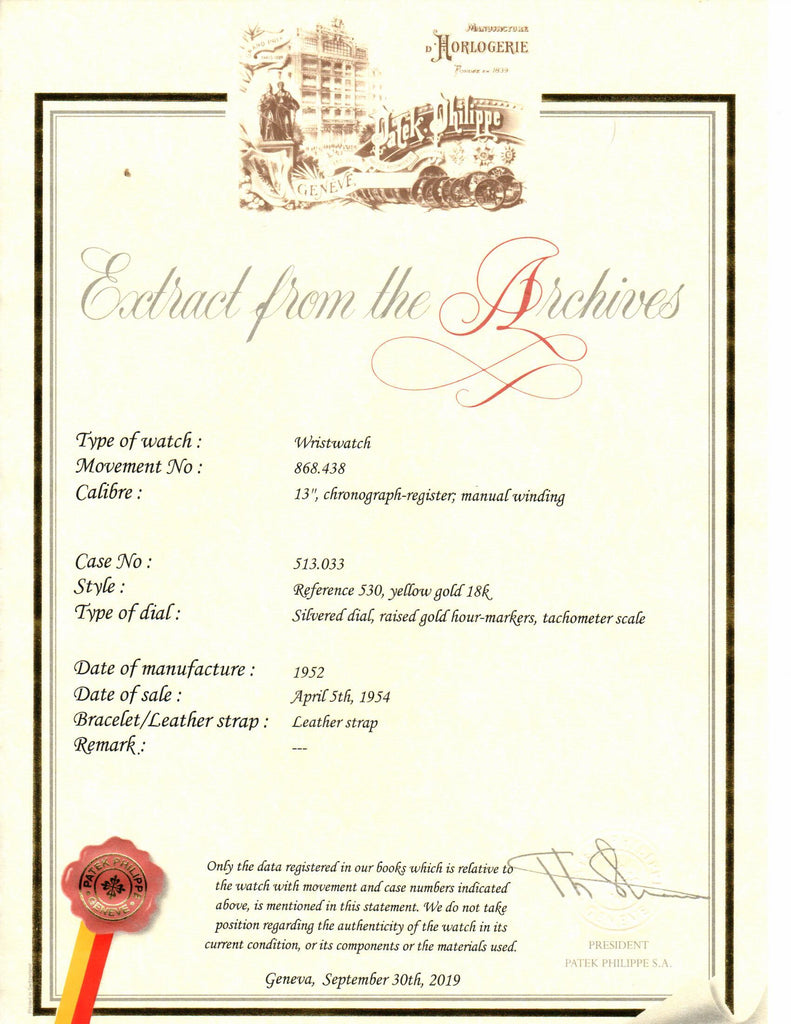 MANUFACTURE
D'HORLOGERIE
FONDÉE EN 1839
GRAND PRIX
Patek Philippe
GENÈVE
Extract from the Archives
Type of watch : Wristwatch
Movement No : 868.438
Calibre : 13", chronograph-register; manual winding
Case No : 513.033
Style : Reference 530, yellow gold 18k
Type of dial : Silvered dial, raised gold hour-markers, tachometer scale
Date of manufacture : 1952
Date of sale : April 5th, 1954
Bracelet/Leather strap : Leather strap
Remark : ---
PATEK PHILIPPE
GENEVE
Only the data registered in our books which is relative to
the watch with movement and case numbers indicated
above, is mentioned in this statement. We do not take
position regarding the authenticity of the watch in its
current condition, or its components or the materials used.
PRESIDENT
PATEK PHILIPPE S.A.
Geneva, September 30th, 2019